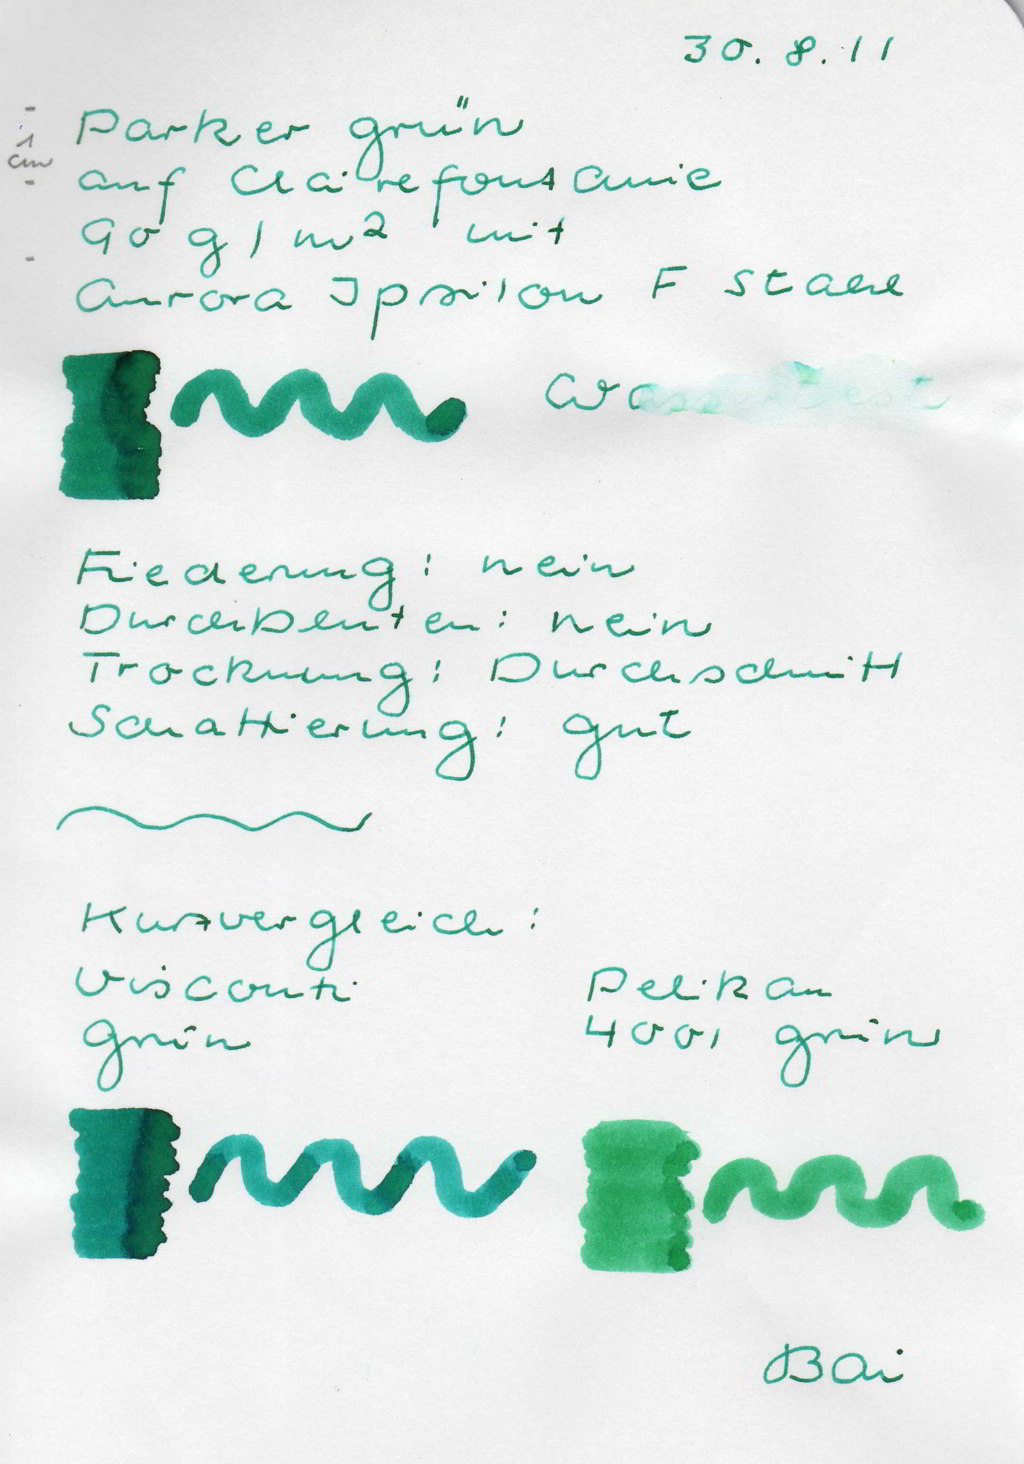 30.8.11
1
cm
Parker grün
auf Clairefontaine
90 g/m² mit
Aurora Ipsilon F Stahl
Fiederung: nein
Durchbluten: nein
Trocknung: Durchschnitt
Schattierung: gut
Kurzvergleich:
Visconti
grün
Pelikan
4001 grün
Bai